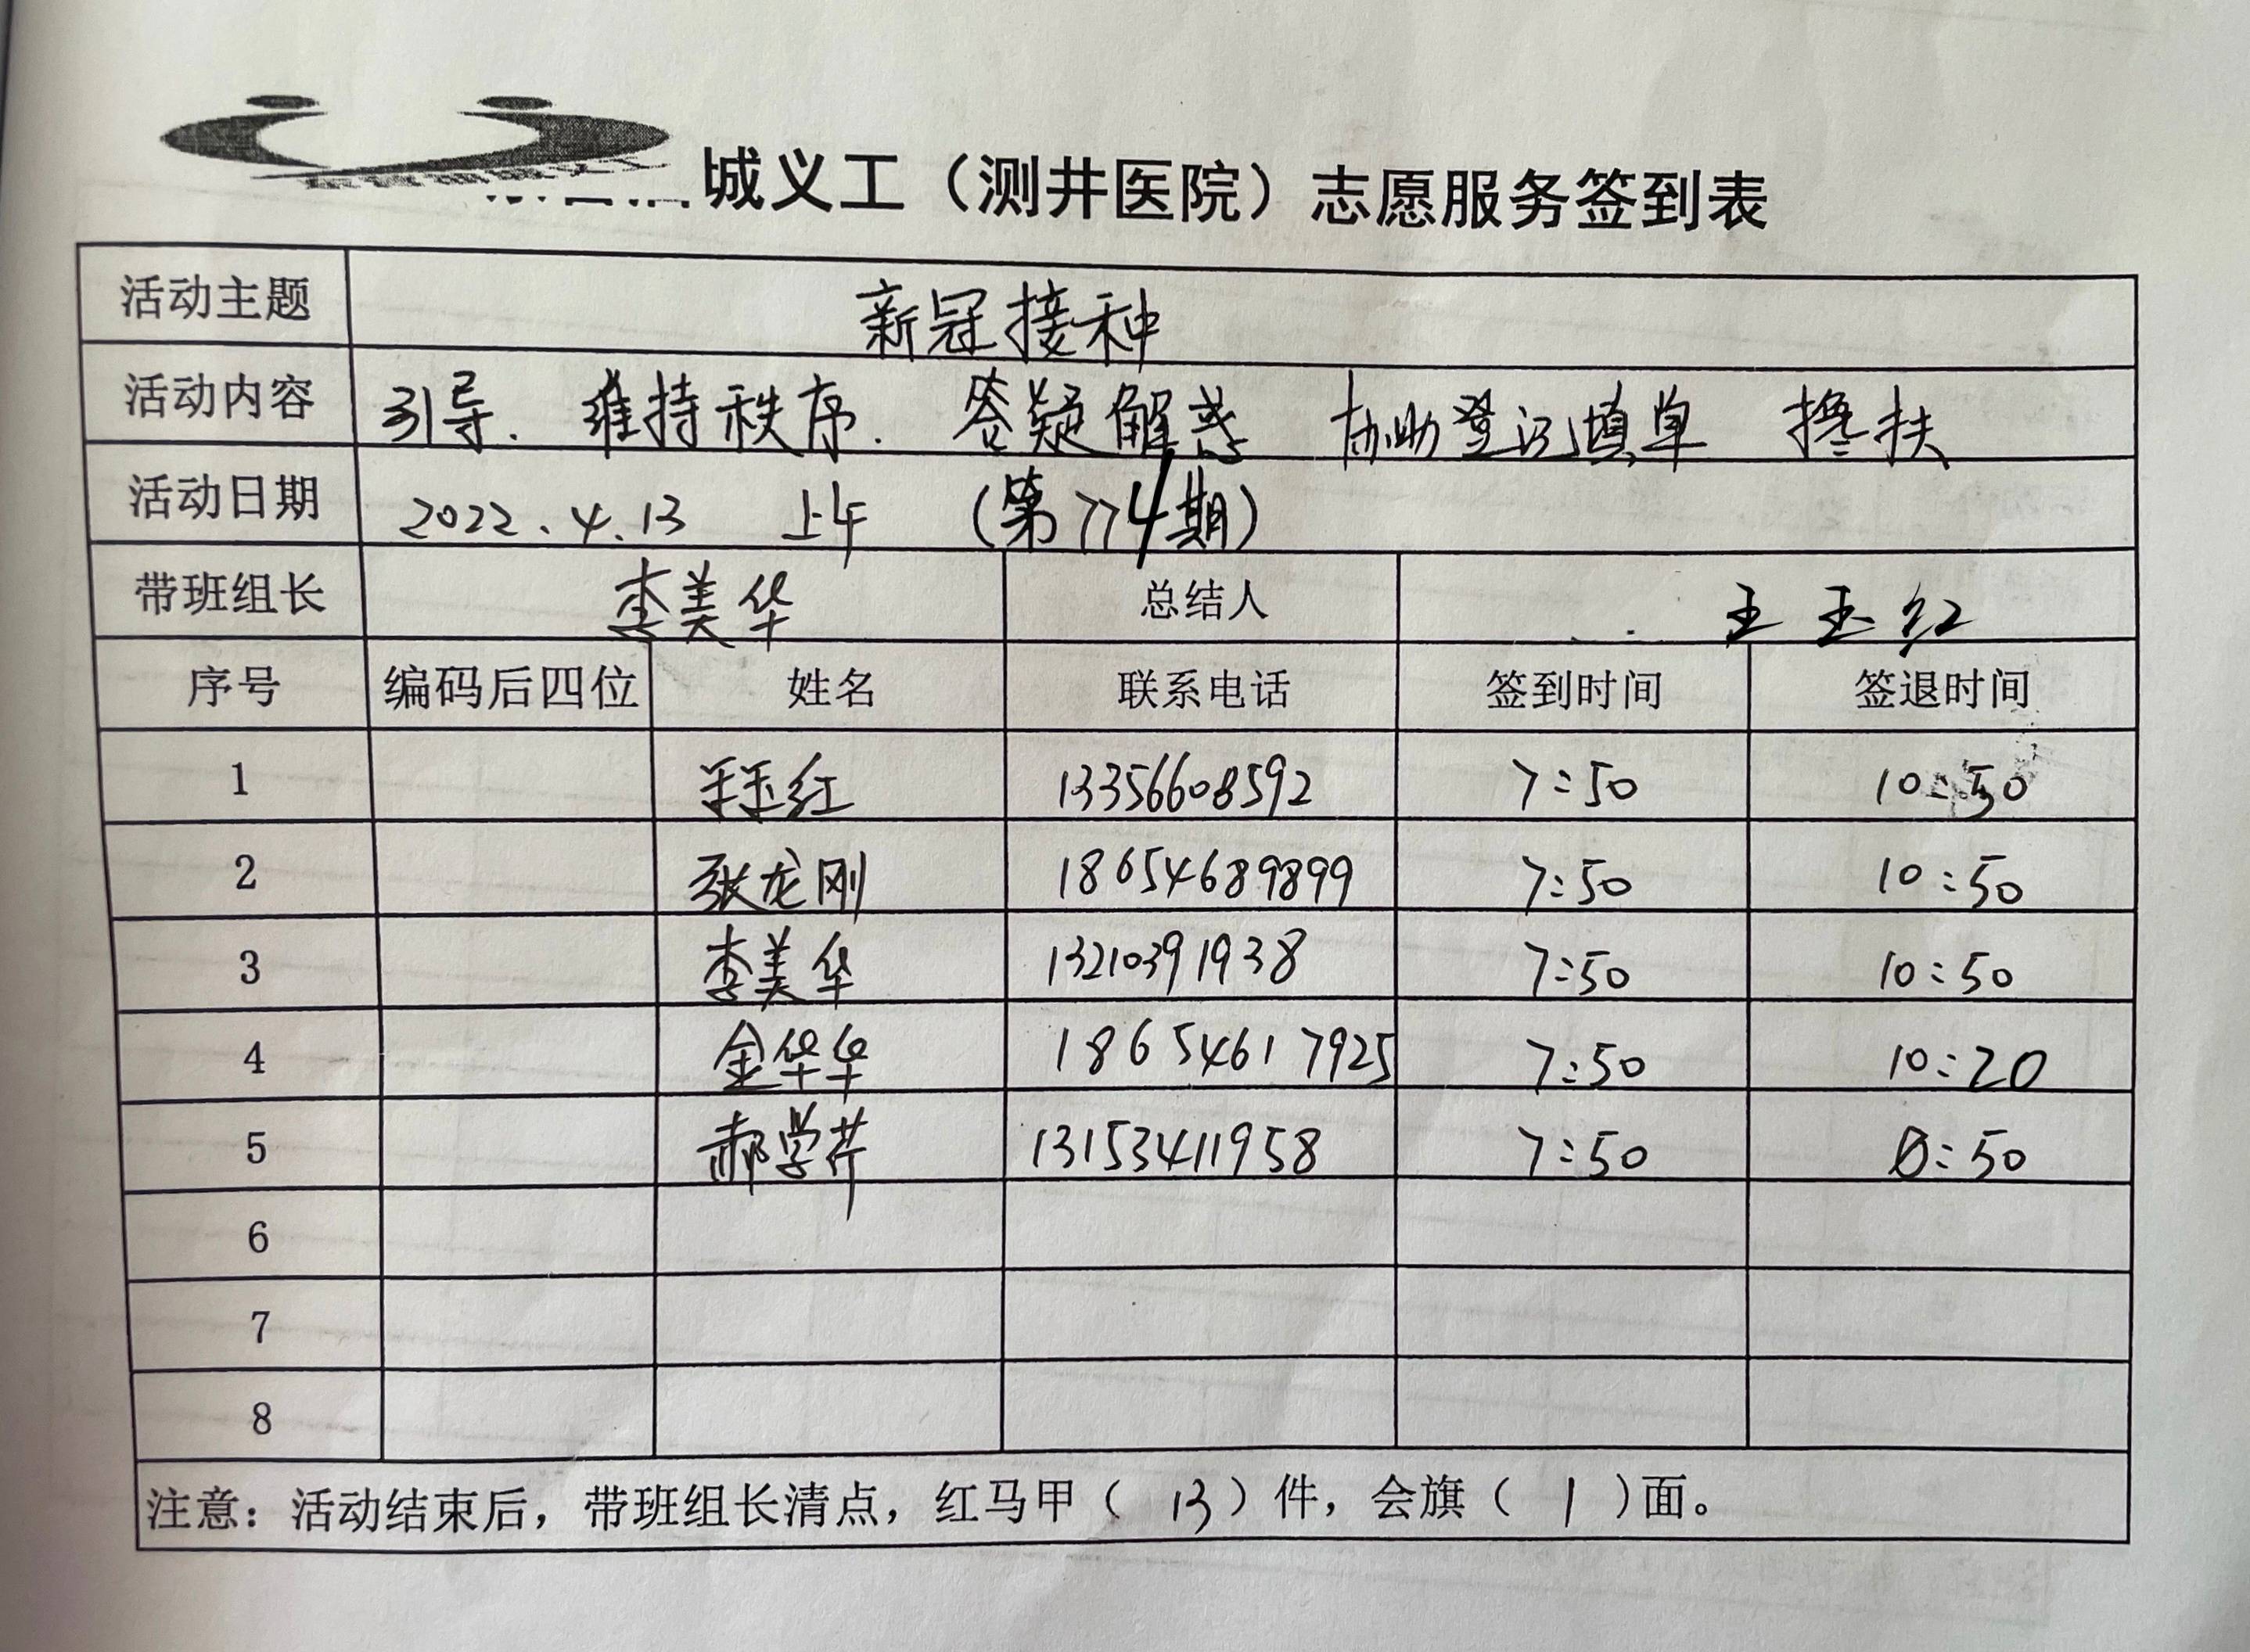 城义工（测井医院）志愿服务签到表
活动主题 新冠接种
活动内容 引导. 维持秩序. 答疑解惑 协助登记填单 搀扶
活动日期 2022.4.13 上午 (第774期)
带班组长 李美华 总结人 王玉红
序号 编码后四位 姓名 联系电话 签到时间 签退时间
1 王玉红 13356608592 7:50 10:50
2 张龙刚 18654689899 7:50 10:50
3 李美华 13210391938 7:50 10:50
4 金华华 18654617925 7:50 10:20
5 郝学芹 13153411958 7:50 :50
6
7
8
注意：活动结束后，带班组长清点，红马甲（ 13 ）件，会旗（ 1 ）面。